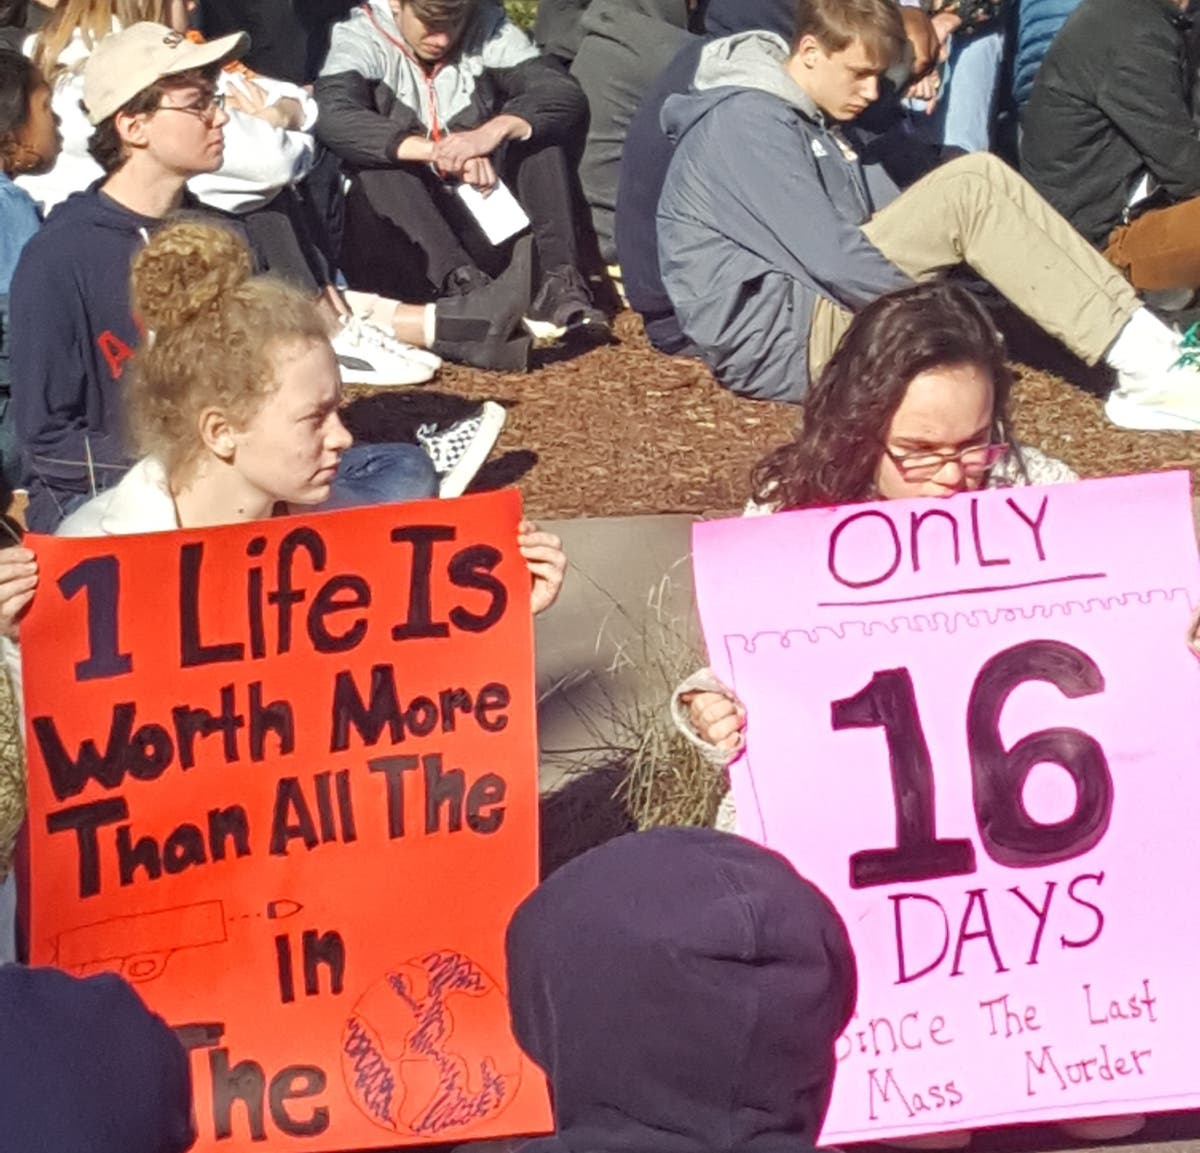 1 Life Is
Worth More
Than All The
in
The
OnLY
16
DAYS
Since The Last
Mass Murder
A